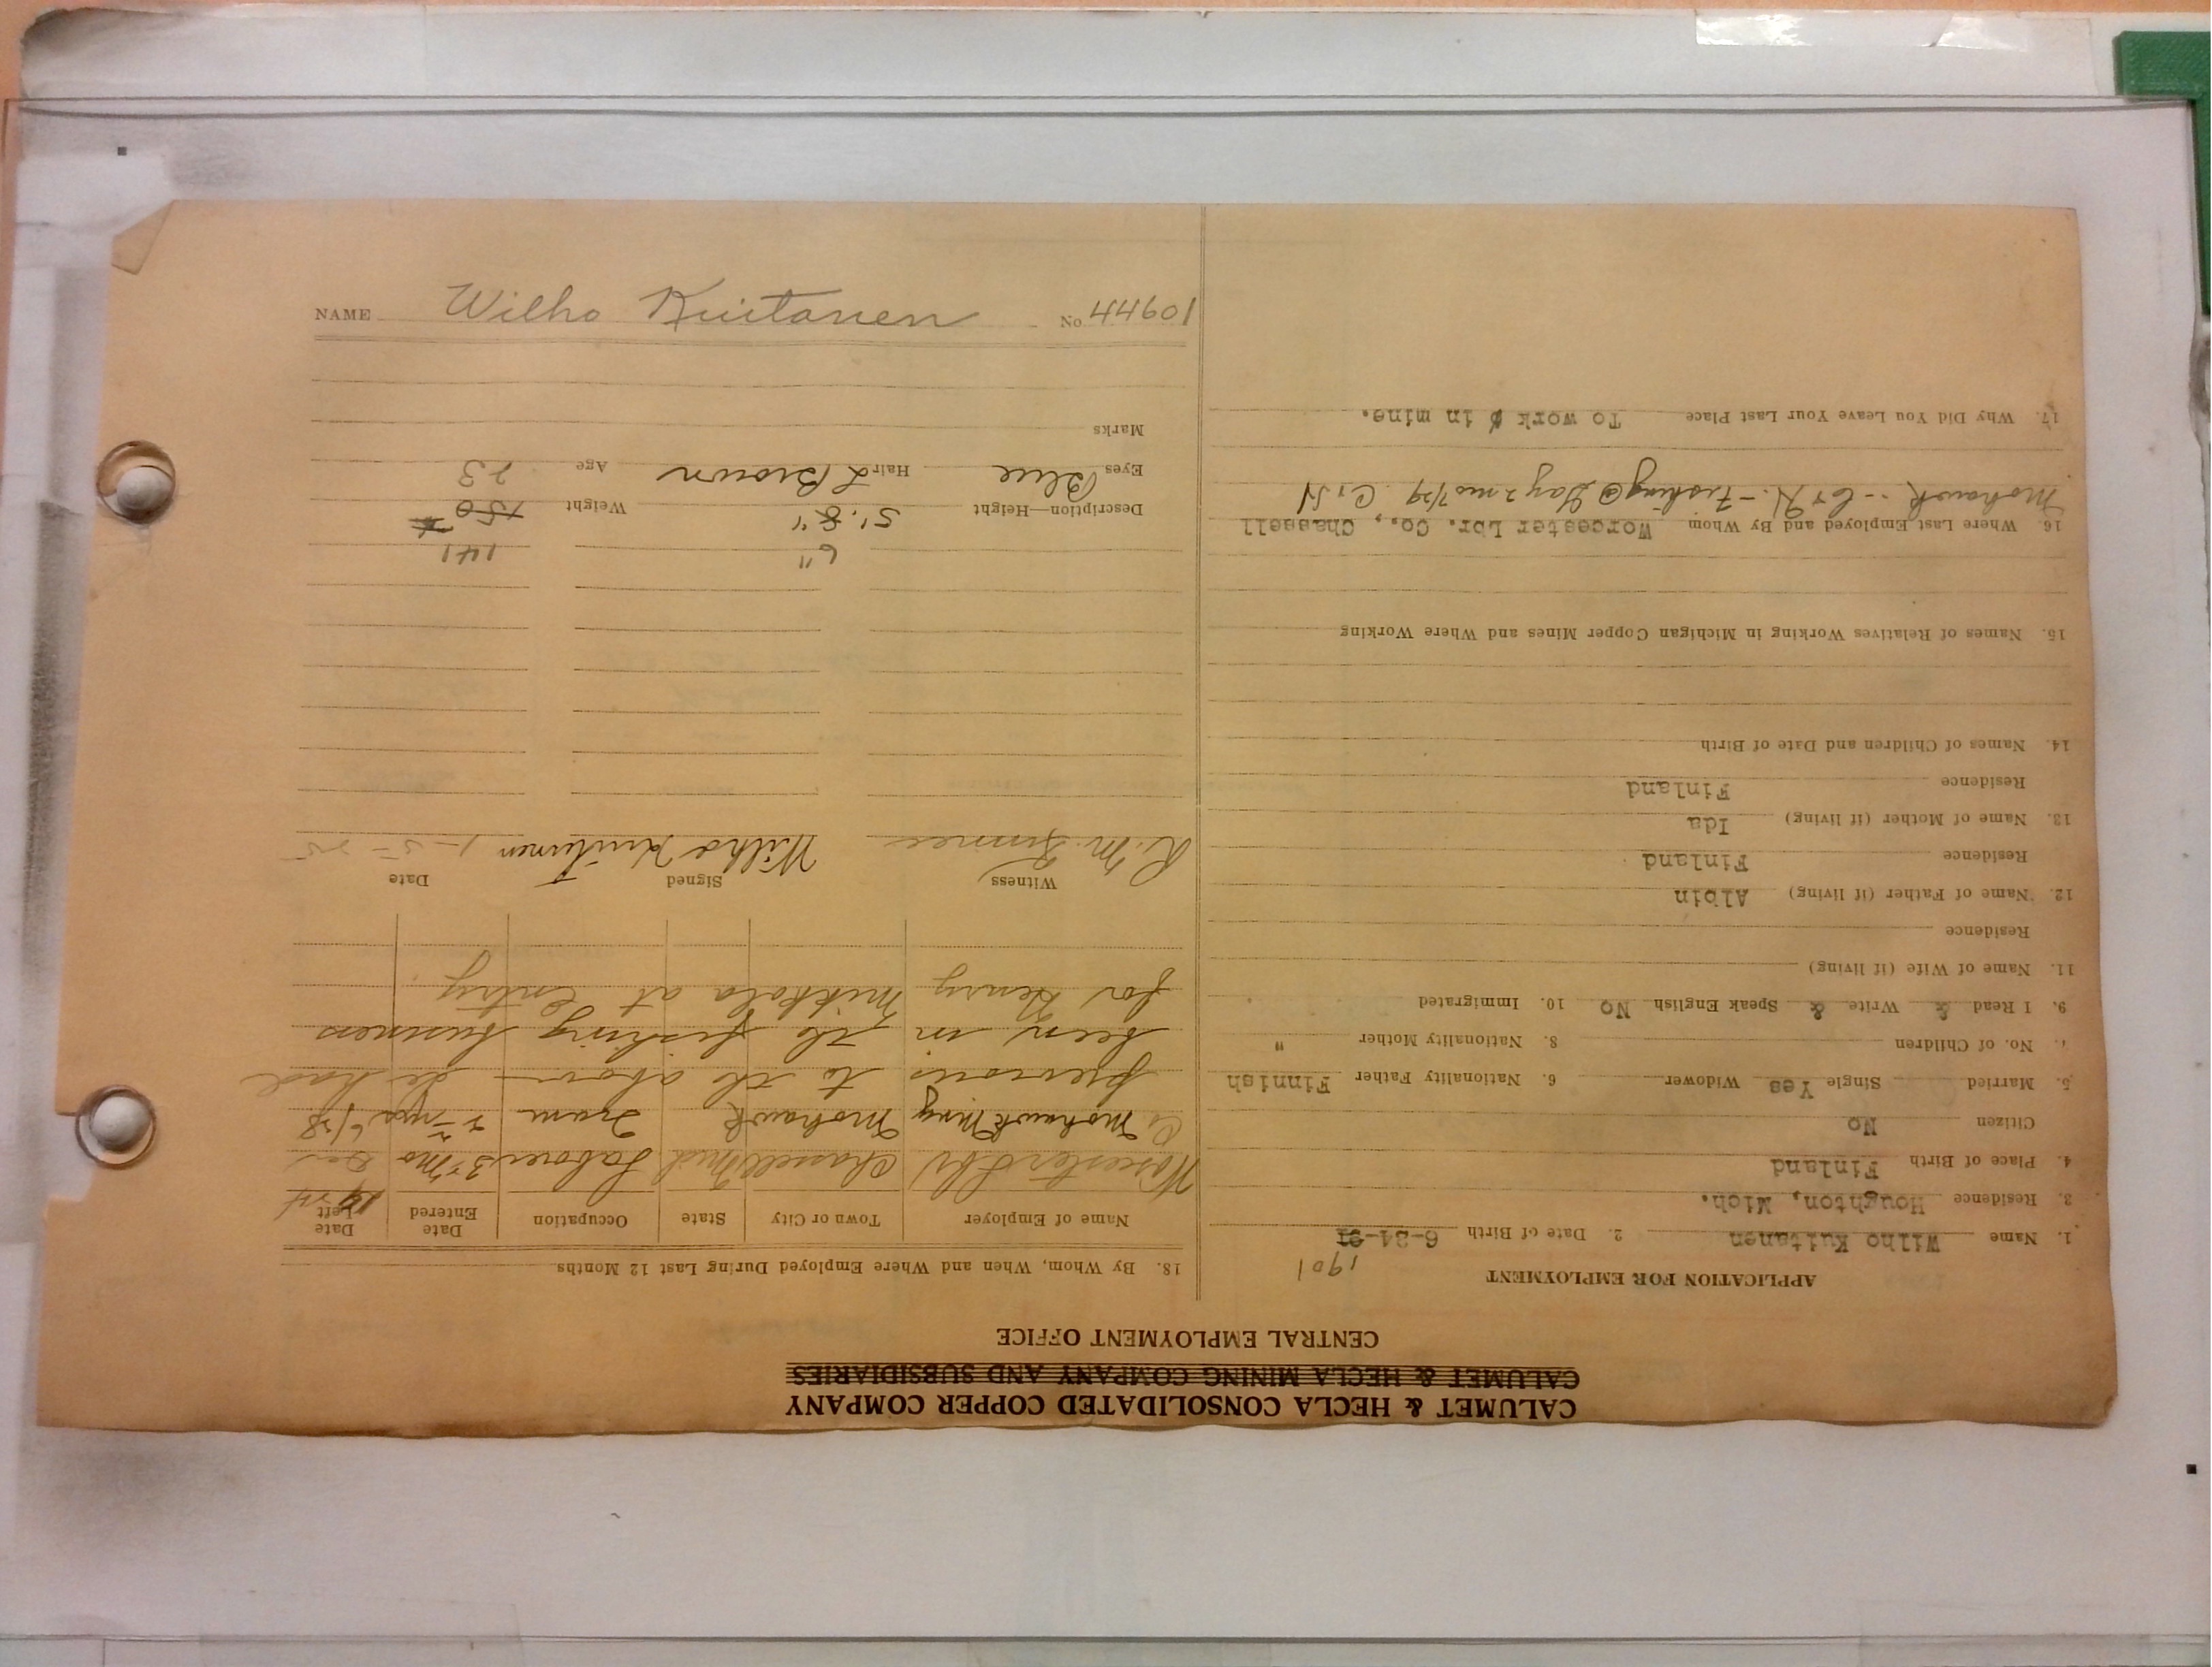 CALUMET & HECLA CONSOLIDATED COPPER COMPANY
CALUMET & HECLA MINING COMPANY AND SUBSIDIARIES
CENTRAL EMPLOYMENT OFFICE
APPLICATION FOR EMPLOYMENT
1901
1. Name Wilho Kuitanen 2. Date of Birth 6-24-
3. Residence Houghton, Mich.
4. Place of Birth Finland
Citizen No
5. Married Single Yes Widower 6. Nationality Father Finnish
7. No. of Children 8. Nationality Mother "
9. I Read & Write & Speak English No 10. Immigrated
11. Name of Wife (if living)
Residence
12. Name of Father (if living) Albin
Residence Finland
13. Name of Mother (if living) Ida
Residence Finland
14. Names of Children and Date of Birth
15. Names of Relatives Working in Michigan Copper Mines and Where Working
16. Where Last Employed and By Whom Worcester Lbr. Co., Chassell
Mohawk - C & H. - Fishing @ Gay 2 mo 7/29 C & H
17. Why Did You Leave Your Last Place To work in mine.
18. By Whom, When and Where Employed During Last 12 Months
Name of Employer Town or City State Occupation Date Entered Date Left
Worcester Lbr Chassell Mich Laborer 3 mo Dec
Co Mohawk Ming Mohawk Tram 6/28
previous to the above he had
been in the fishing business
for Henry Mikkola at Entry
Witness Signed Date
R. M. Wilho Kuitunen 1-5-25
6" 141
Description—Height 5'.8" Weight 150
Eyes Blue Hair L Brown Age 23
Marks
NAME Wilho Kuitanen No. 44601